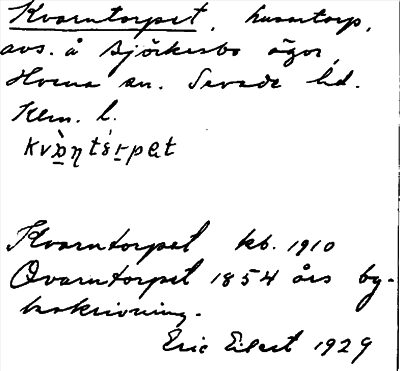 Kvarntorpet, husartorp,
avs. å Björkesbo ägor,
Horna sn. Sevede hd.
Klm. l.
kvàṇtórpet
Kvarntorpet kb. 1910
Qvarntorpet 1854 års by-
beskrivning.
Eric Eilert 1929